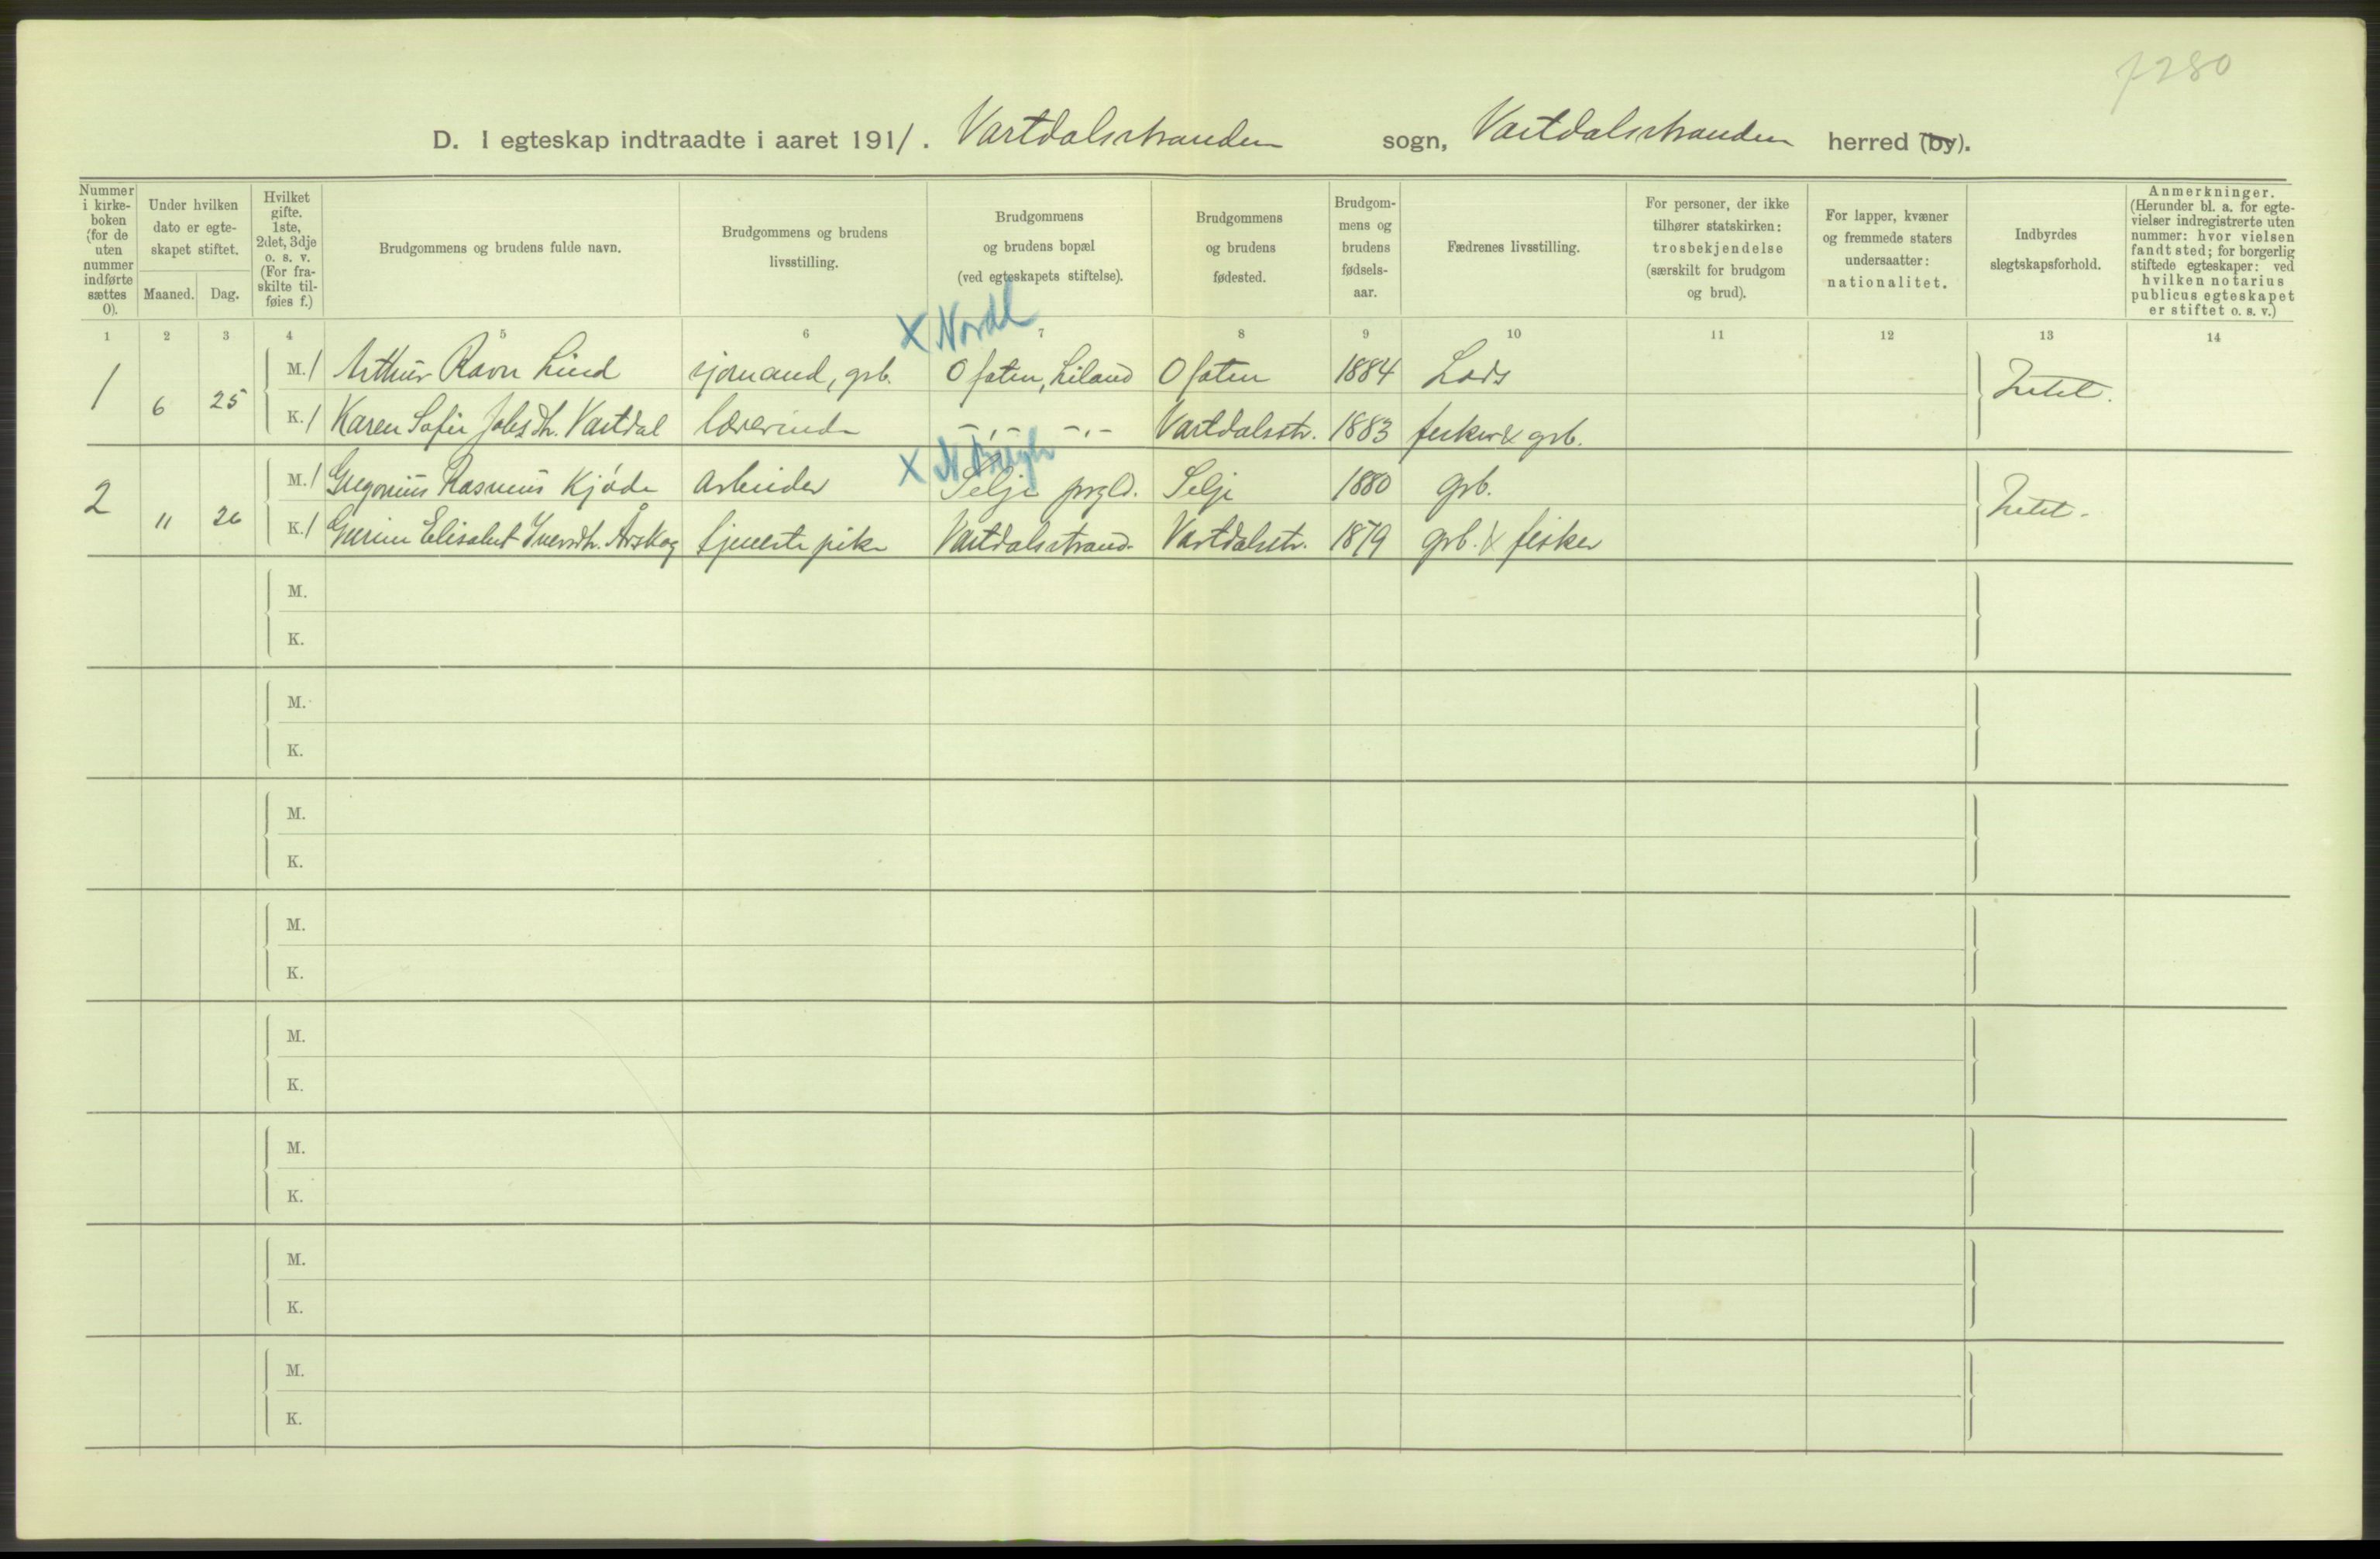 7280
D. I egteskap indtraadte i aaret 1911. Vartdalsstranden sogn, Vartdalsstranden herred (by).
Nummer i kirke-boken (for de uten nummer indførte sættes 0).
Under hvilken dato er egte-skapet stiftet.
Maaned. Dag.
Hvilket gifte. 1ste, 2det, 3dje o. s. v. (For fra-skilte til-føies f.)
Brudgommens og brudens fulde navn.
Brudgommens og brudens livsstilling.
Brudgommens og brudens bopæl (ved egteskapets stiftelse).
Brudgommens og brudens fødested.
Brudgom-mens og brudens fødsels-aar.
Fædrenes livsstilling.
For personer, der ikke tilhører statskirken: trosbekjendelse (særskilt for brudgom og brud).
For lapper, kvæner og fremmede staters undersaatter: nationalitet.
Indbyrdes slegtskapsforhold.
Anmerkninger. (Herunder bl. a. for egte-vielser indregistrerte uten nummer: hvor vielsen fandt sted; for borgerlig stiftede egteskaper: ved hvilken notarius publicus egteskapet er stiftet o. s. v.)
1 2 3 4 5 6 7 8 9 10 11 12 13 14
X Nordl
1 6 25 M. 1 Arthur Ravn Lind sjømand, grb. Ofoten, Liland Ofoten 1884 Lods Intet.
K. 1 Karen Sofie Jakobsdtr. Vartdal lærerinde -„- -„- Vartdalsstr. 1883 fisker & grb.
X
2 11 26 M. 1 Gregorius Rasmus Kjøde arbeider Selje prgld. Selje 1880 grb. Intet.
K. 1 Elisabet Iversdtr. Årskog tjenestepike Vartdalsstrand. Vartdalsstr. 1879 grb. & fisker
M.
K.
M.
K.
M.
K.
M.
K.
M.
K.
M.
K.
M.
K.
M.
K.